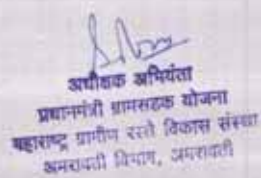 अधीक्षक अभियंता
प्रधानमंत्री ग्रामसडक योजना
महाराष्ट्र ग्रामीण रस्ते विकास संस्था
अमरावती विभाग, अमरावती